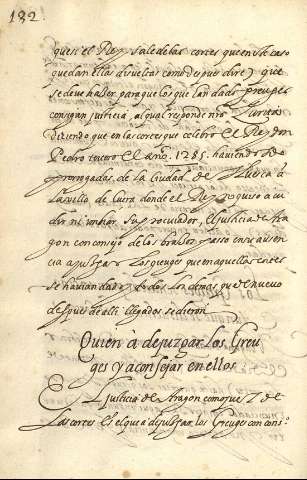 182.
que si el Rey sale de las cortes que en este caso
quedan ellas disueltas como despues dire, y que
se deve haser para que los que han dado greuges
consigan justicia, a lo qual responde nro Çurita
disiendo que en las cortes que celebro el Rey don
Pedro tercero el año 1285. haviendose
prorogadas, de la Ciudad de Huesca a
la villa de Çuera donde el Rey no quiso acu
dir ni imbiar su procurador, el Justicia de Ara
gon con consejo de los brasos, passo en su ausen
cia a jusgar los greuges que en aquellas cortes
se havian dado, y todos los demas que de nuevo
despues de alli llegados se dieron.
Quien à de juzgar los Greu
ges y aconsejar en ellos
El Justicia de Aragon como Juez de
las cortes es el que a de jusgar los Greuges con cons.º